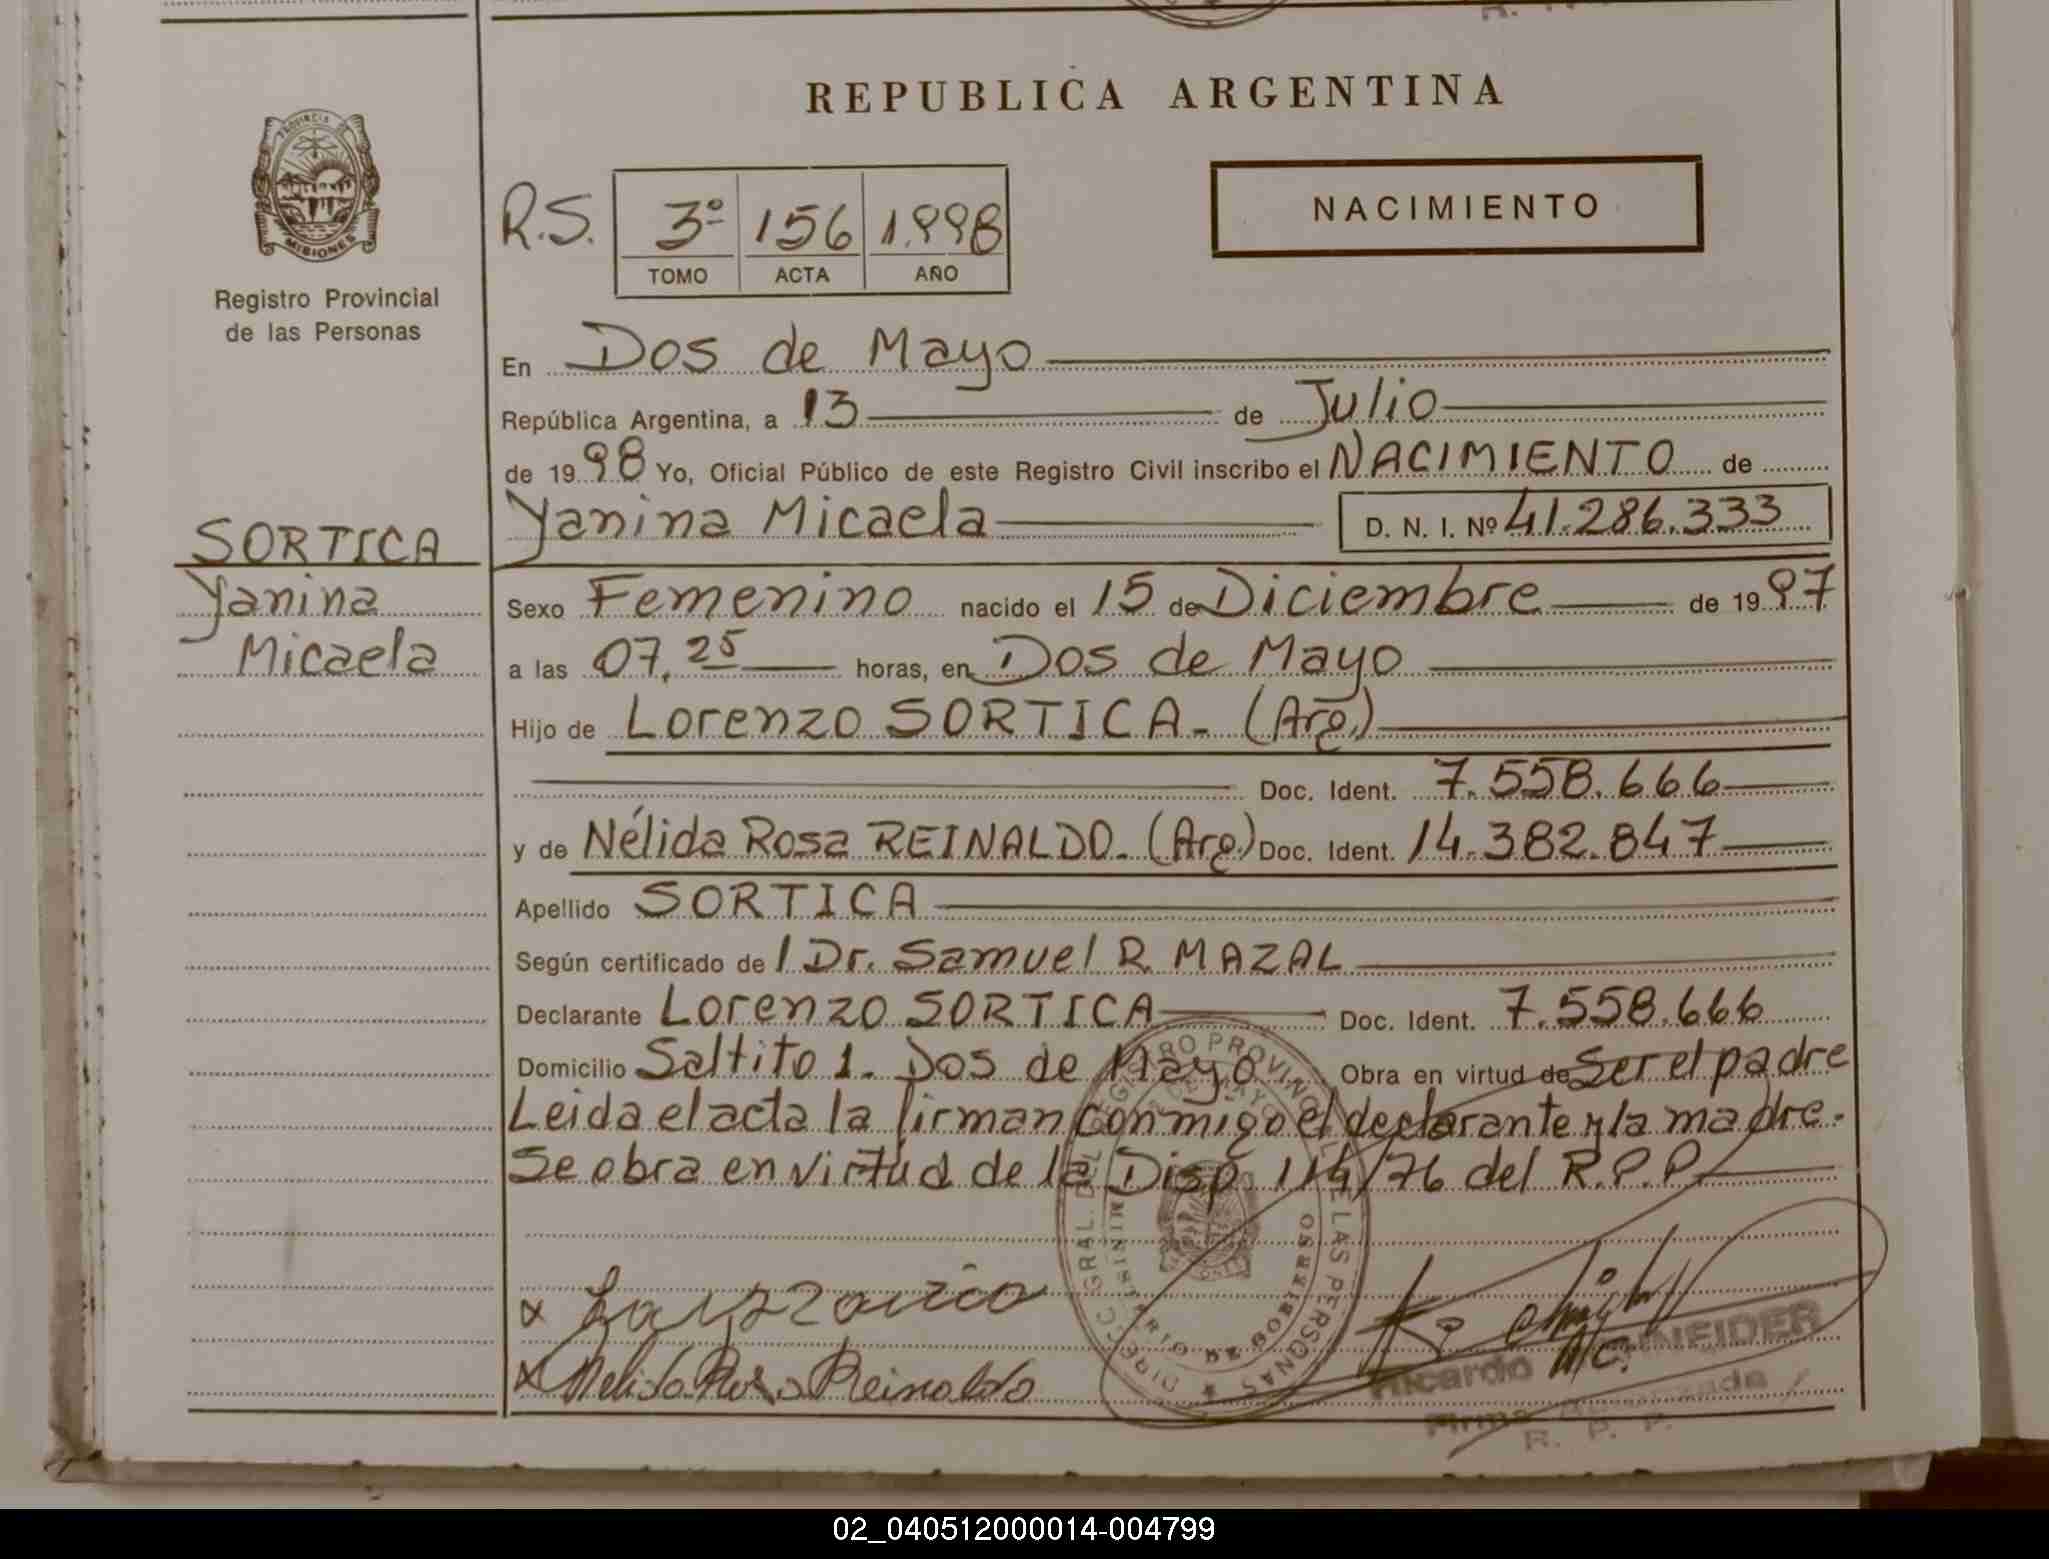 REPUBLICA ARGENTINA
PROVINCIA DE
MISIONES
Registro Provincial
de las Personas
R.S. 3º 156 1.998
TOMO ACTA AÑO
NACIMIENTO
En Dos de Mayo
República Argentina, a 13 de Julio
de 19 98 Yo, Oficial Público de este Registro Civil inscribo el NACIMIENTO de
Yanina Micaela D. N. I. Nº 41.286.333
SORTICA
Yanina
Micaela
Sexo Femenino nacido el 15 de Diciembre de 19 97
a las 07,25 horas, en Dos de Mayo
Hijo de Lorenzo SORTICA - (Arg.)
Doc. Ident. 7.558.666
y de Nélida Rosa REINALDO - (Arg.) Doc. Ident. 14.382.847
Apellido SORTICA
Según certificado de l Dr. Samuel R. MAZAL
Declarante Lorenzo SORTICA Doc. Ident. 7.558.666
Domicilio Saltito 1. Dos de Mayo Obra en virtud de Ser el padre
Leida el acta la firman conmigo el declarante y la madre.
Se obra en virtud de la Disp. 114/76 del R.P.P.
DIRECC. GRAL. DEL REGISTRO PROVINCIAL DE LAS PERSONAS
MINISTERIO DE GOBIERNO
x
x Nelida Rosa Reinaldo
Ricardo SCHNEIDER
Firma
R. P. P.
02_040512000014-004799